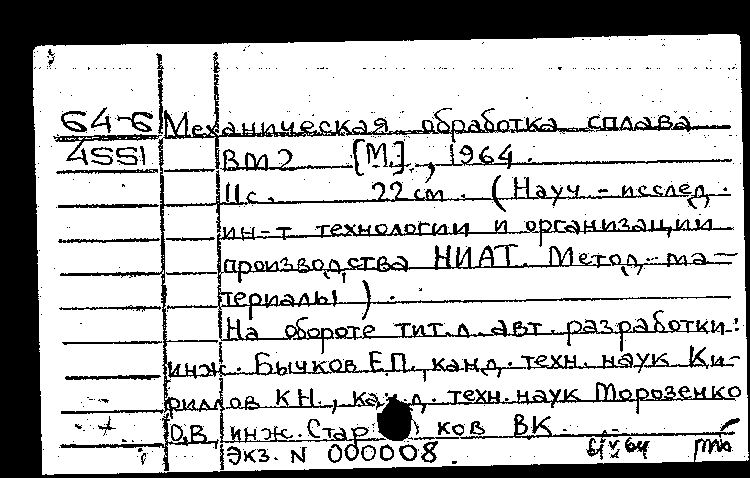 64-6 Механическая обработка сплава
4551 ВМ2 [М.], 1964.
11с. 22 см. (Науч.-исслед.
ин-т технологии и организации
производства НИАТ. Метод. ма-
териалы).
На обороте тит.л. авт. разработки:
инж. Бычков Е.П., канд. техн. наук Ки-
риллов К.Н., канд. техн. наук Морозенко
О.В., инж. Стар ков В.К.
Экз. N 000008.